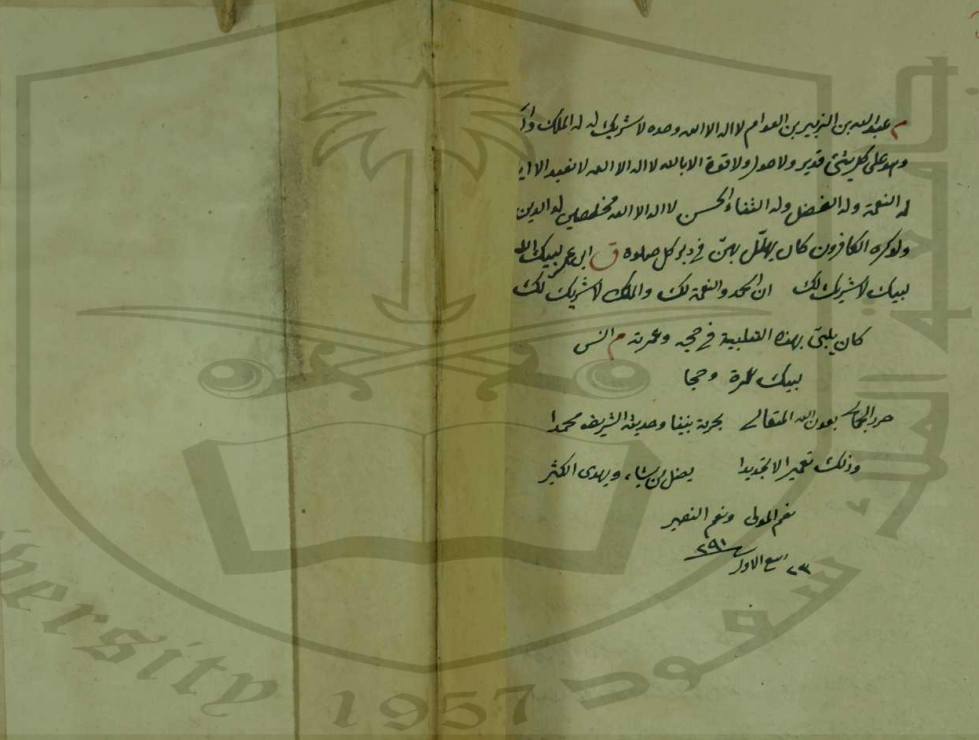 م عبد الله بن الزبير بن العوام لا اله الا الله وحده لا شريك له له الملك وا
وهو على كل شئ قدير ولا حول ولا قوة الا بالله لا اله الا الله لا نعبد الا ايا
له النعمة وله الفضل وله الثناء الحسن لا اله الا الله مخلصين له الدين
ولو كره الكافرون كان يهلل بهن في دبر كل صلوة ق ابن عمر لبيك الله
لبيك لا شريك لك ان الحمد والنعمة لك والملك لا شريك لك
كان يلبى بهذه التلبية في حجه وعمرته م انس
لبيك عمرة وحجا
بعون الله المتعالى بحرمة نبينا وحديثه الشريف محمدا
وذلك تعمير الا تجديدا يضل من يشاء ويهدى الكثير
نعم المولى ونعم النصير
٢٣ ربيع الاول ٢٩١
جامعة الملك سعود
University 1957